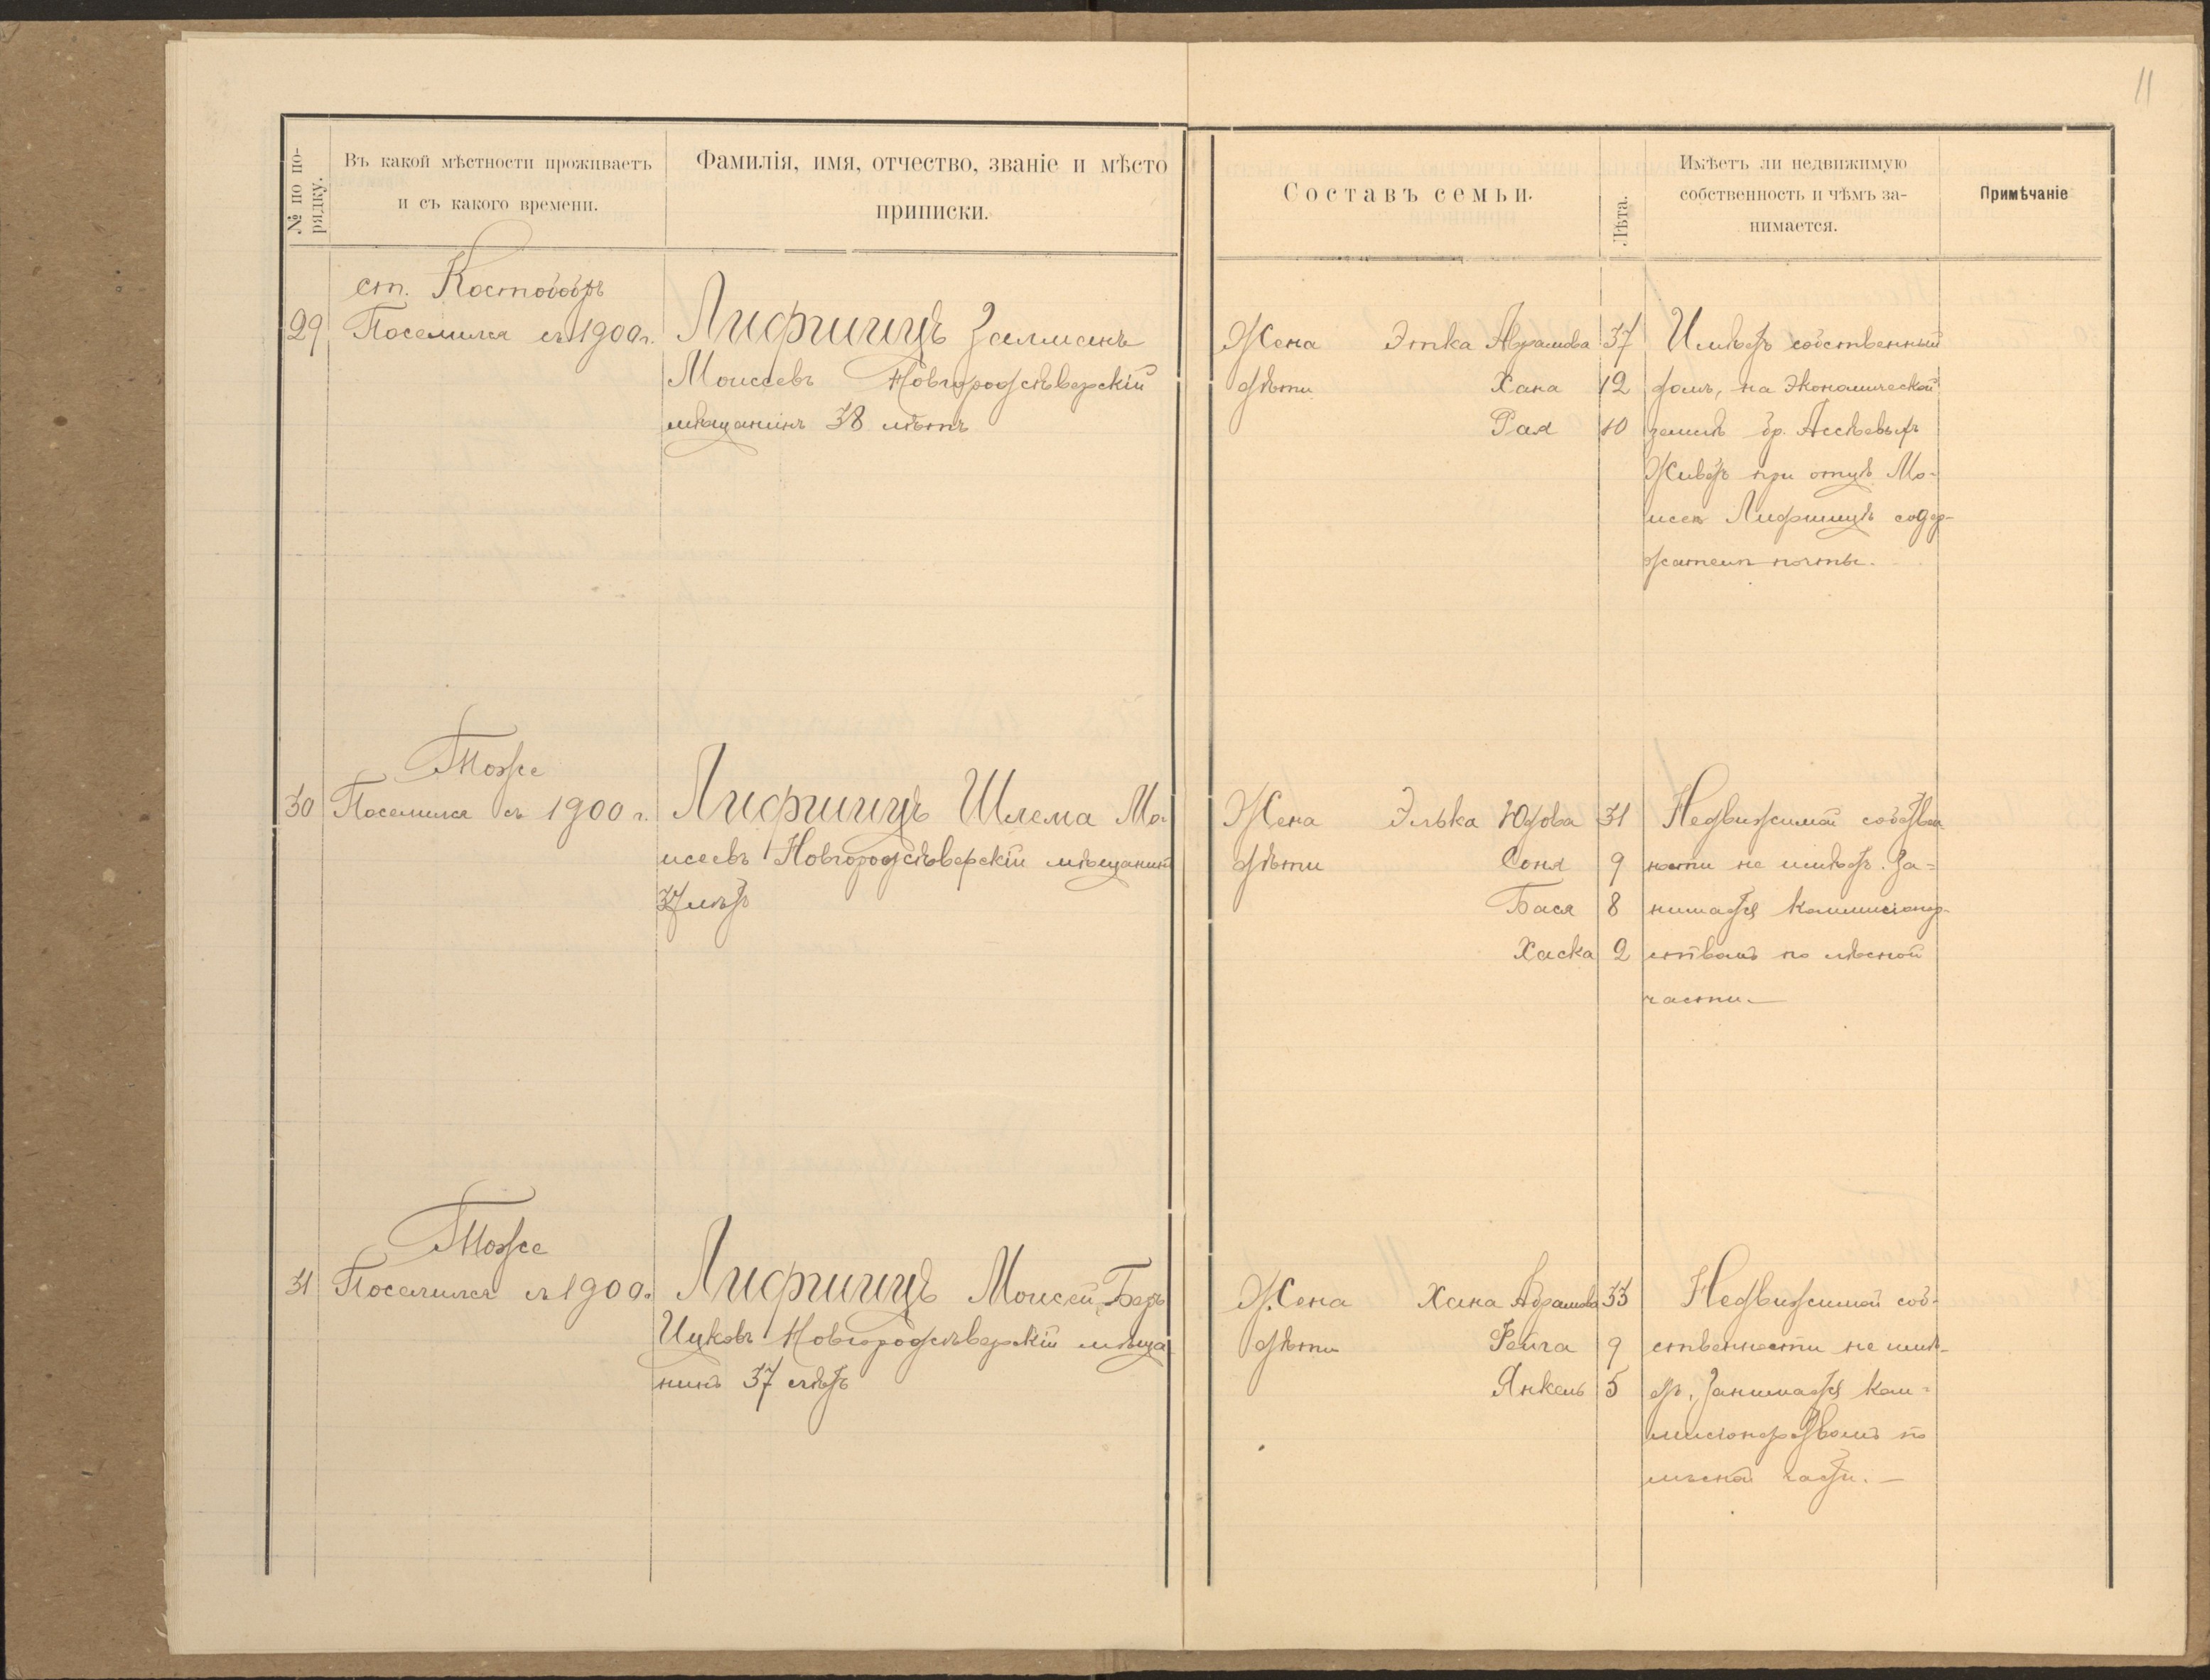 11
№ по по-
рядку.
Въ какой мѣстности проживаетъ
и съ какого времени.
Фамилія, имя, отчество, званіе и мѣсто
приписки.
Составъ семьи.
Лѣта.
Имѣетъ ли недвижимую
собственность и чѣмъ за-
нимается.
Примѣчаніе
ст. Костобобръ
29 Поселился съ 1900 г. Лифшицъ Залманъ
Моисеевъ Новгородсѣверскій
мѣщанинъ 38 лѣтъ
Жена Этка Абрамова 37 Имѣетъ собственный
дѣти Хана 12 домъ, на экономической
Рая 10 землѣ бр.
Живетъ при отцѣ Мо-
исеѣ Лифшицѣ содер-
жателѣ почты.
Тоже
30 Поселился съ 1900 г. Лифшицъ Шлема Мо-
исеевъ Новгородсѣверскій мѣщанинъ
37 лѣтъ
Жена Элька Юдова 31 Недвижимой собствен-
дѣти Соня 9 ности не имѣетъ. За-
Бася 8 нимается коммисіонер-
Хаска 2 ствомъ по лѣсной
части.
Тоже
31 Поселился съ 1900 г. Лифшицъ Моисей-Беръ
Ицковъ Новгородсѣверскій мѣща
нинъ 37 лѣтъ
Жена Хана Абрамова 33 Недвижимой соб-
дѣти Фейга 9 ственности не имѣ-
Янкель 5 етъ, Занимается ком-
мисіонерствомъ по
лѣсной части.